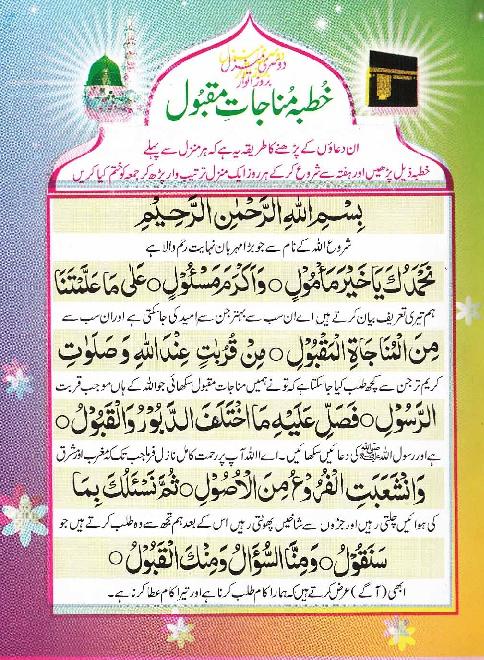 دوسری منزل
بروز اتوار
خطبہ مُناجاتِ مقبول
ان دعاؤں کے پڑھنے کا طریقہ یہ ہے کہ ہر منزل سے پہلے
خطبہ ذیل پڑھیں اور ہفتہ سے شروع کر کے ہر روز ایک منزل ترتیب وار پڑھ کر جمعہ کو ختم کیا کریں
بِسْمِ اللهِ الرَّحْمٰنِ الرَّحِيْمِ
شروع اللہ کے نام سے جو بڑا مہربان نہایت رحم والا ہے
نَحْمَدُكَ يَا خَيْرَ مَأْمُوْلٍ ○ وَاَكْرَمَ مَسْئُوْلٍ ○ عَلٰى مَا عَلَّمْتَنَا
ہم تیری تعریف بیان کرتے ہیں اے ان سب سے بہتر جن سے امید کی جا سکتی ہے اور ان سب سے
مِنَ الْمُنَاجَاةِ الْمَقْبُوْلِ ○ مِنْ قُرُبٰتٍ عِنْدَ اللهِ وَصَلَوٰتِ
کریم تر جن سے کچھ طلب کیا جا سکتا ہے کہ تو نے ہمیں مناجات مقبول سکھائی جو اللہ کے ہاں موجب قربت
الرَّسُوْلِ ○ فَصَلِّ عَلَيْهِ مَا اخْتَلَفَ الدَّبُوْرُ وَالْقَبُوْلُ ○
ہے اور رسول اللہ ﷺ کی دعائیں سکھائیں۔ اے اللہ آپ پر رحمت کامل نازل فرما جب تک کہ مغرب اور شرق
وَانْشَعَبَتِ الْفُرُوْعُ مِنَ الْاُصُوْلِ ○ ثُمَّ نَسْئَلُكَ بِمَا
کی ہوائیں چلتی رہیں اور جڑوں سے شاخیں پھوٹتی رہیں اس کے بعد ہم تجھ سے وہ طلب کرتے ہیں جو
سَنَقُوْلُ ○ وَمِنَّا السُّؤَالُ وَمِنْكَ الْقَبُوْلُ ○
ابھی (آگے) عرض کرتے ہیں کہ ہمارا کام طلب کرنا ہے اور تیرا کام عطا کرنا ہے۔